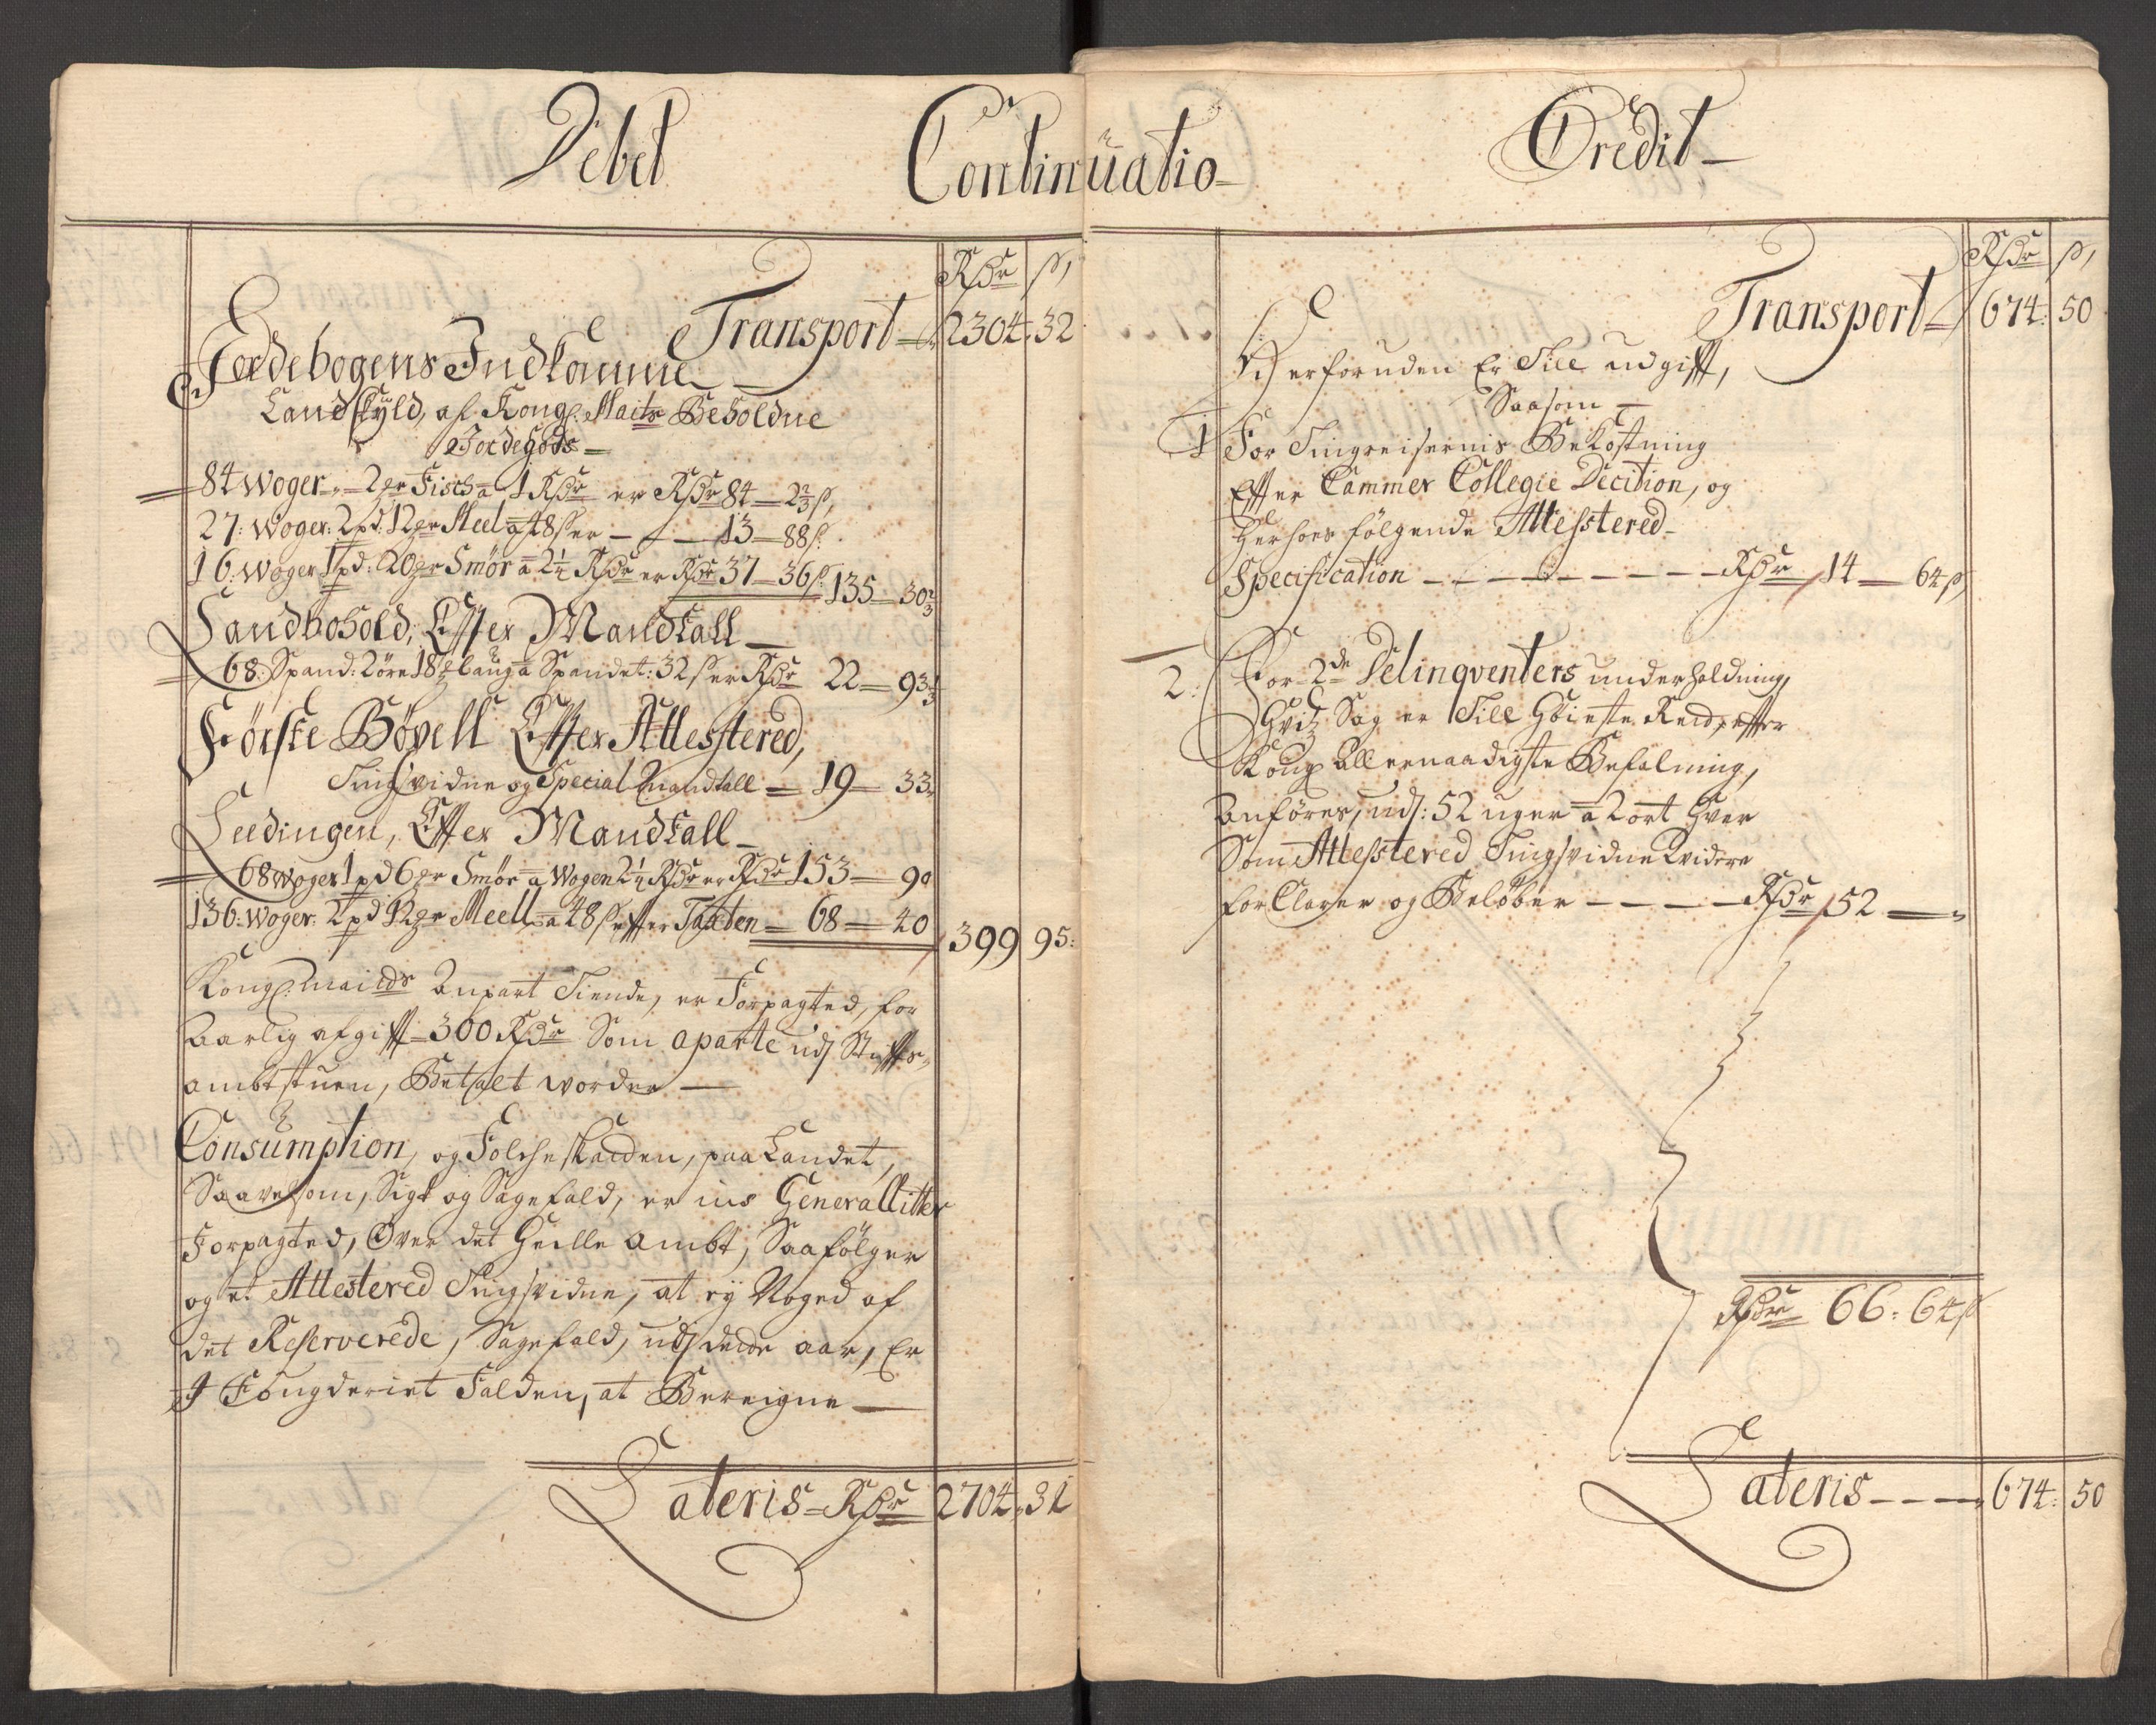 Debet
Continuatio
Credit
Rdr ß
Transport 2304: 32
Jordebogens Indkomme
Landskyld, af Kongl: Maits Beholdne
Jordegods
84 Woger 2 pr Fisch a 1 Rdr er Rdr 84 — 2⅔ ß
27: Woger: 2 pd: 12 pr Meel a 48 ß er — 13 — 88 ß:
16: Woger 1 pd: 20 pr Smör a 2¼ Rdr er Rdr 37 — 36 ß 135 — 30⅔
Landbohold, Effter Mandtall
68: Spand: 2 öre 18 laug a Spandet: 32 ß er Rdr 22 — 93⅓
Förste Bøxell Effter Attestered,
Tingsvidne og Special Mandtall — 19 — 33
Leedingen, Effter Mandtall
68 Woger 1 pd 6 pr Smör a Wogen 2¼ Rdr er Rdr 153 — 90
136: Woger: 2 pd 12 pr Meell a 48 ß effter Taxten — 68 — 40
399 95:
Kongl: Maitds Anpart Tiende, er Forpagted, for
Aarlig afgifft 300 Rdr Som aparte udj Stiffts
ambtstuen, Betalt worder
Consumption, og Folcheskatten, paa Landet,
Saavelsom, Sigt og Sagefald, er ins Generalliter
Forpagted, Över det Heille Ambt, Saafölger
og et Attestered Tingsvidne, at ey Noged af
det Reserverede, Sagefald, udj dette aar, Er
I Fougderiet Falden, at Bereigne
Lateris Rdr 2704: 31
Rdr ß
Transport 674: 50
Derforuden Er Till udgifft,
Saasom
1 For Tingreisernis Bekostning
Effter Cammer Collegie Decition, og
Herhos fölgende Attestered
Specification Rdr 14 — 64 ß
2: For 2de Delinqventers underholdning,
Hvis Sag er Till Höieste Rett, effter
Kongl Allernaadigste Befalning,
Anföres, udj: 52 uger a 2 ort Hver
Som Attestered Tingsvidne Widere
forClarer og Beløber Rdr 52
Rdr 66: 64 ß
Lateris 674: 50